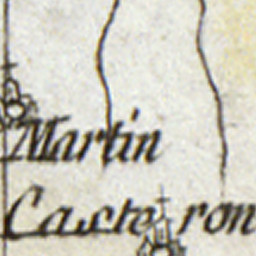 Martin
Casteron